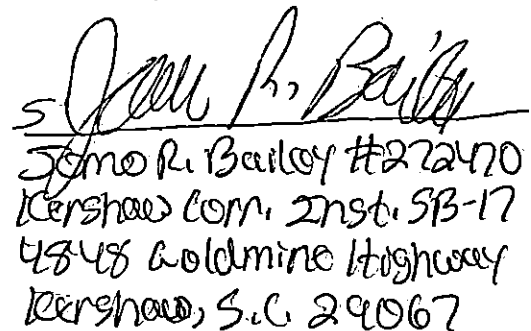 S
Jomo R. Bailey #272470
Kershaw Corr. Inst. SB-17
4848 Goldmine Highway
Kershaw, S.C. 29067